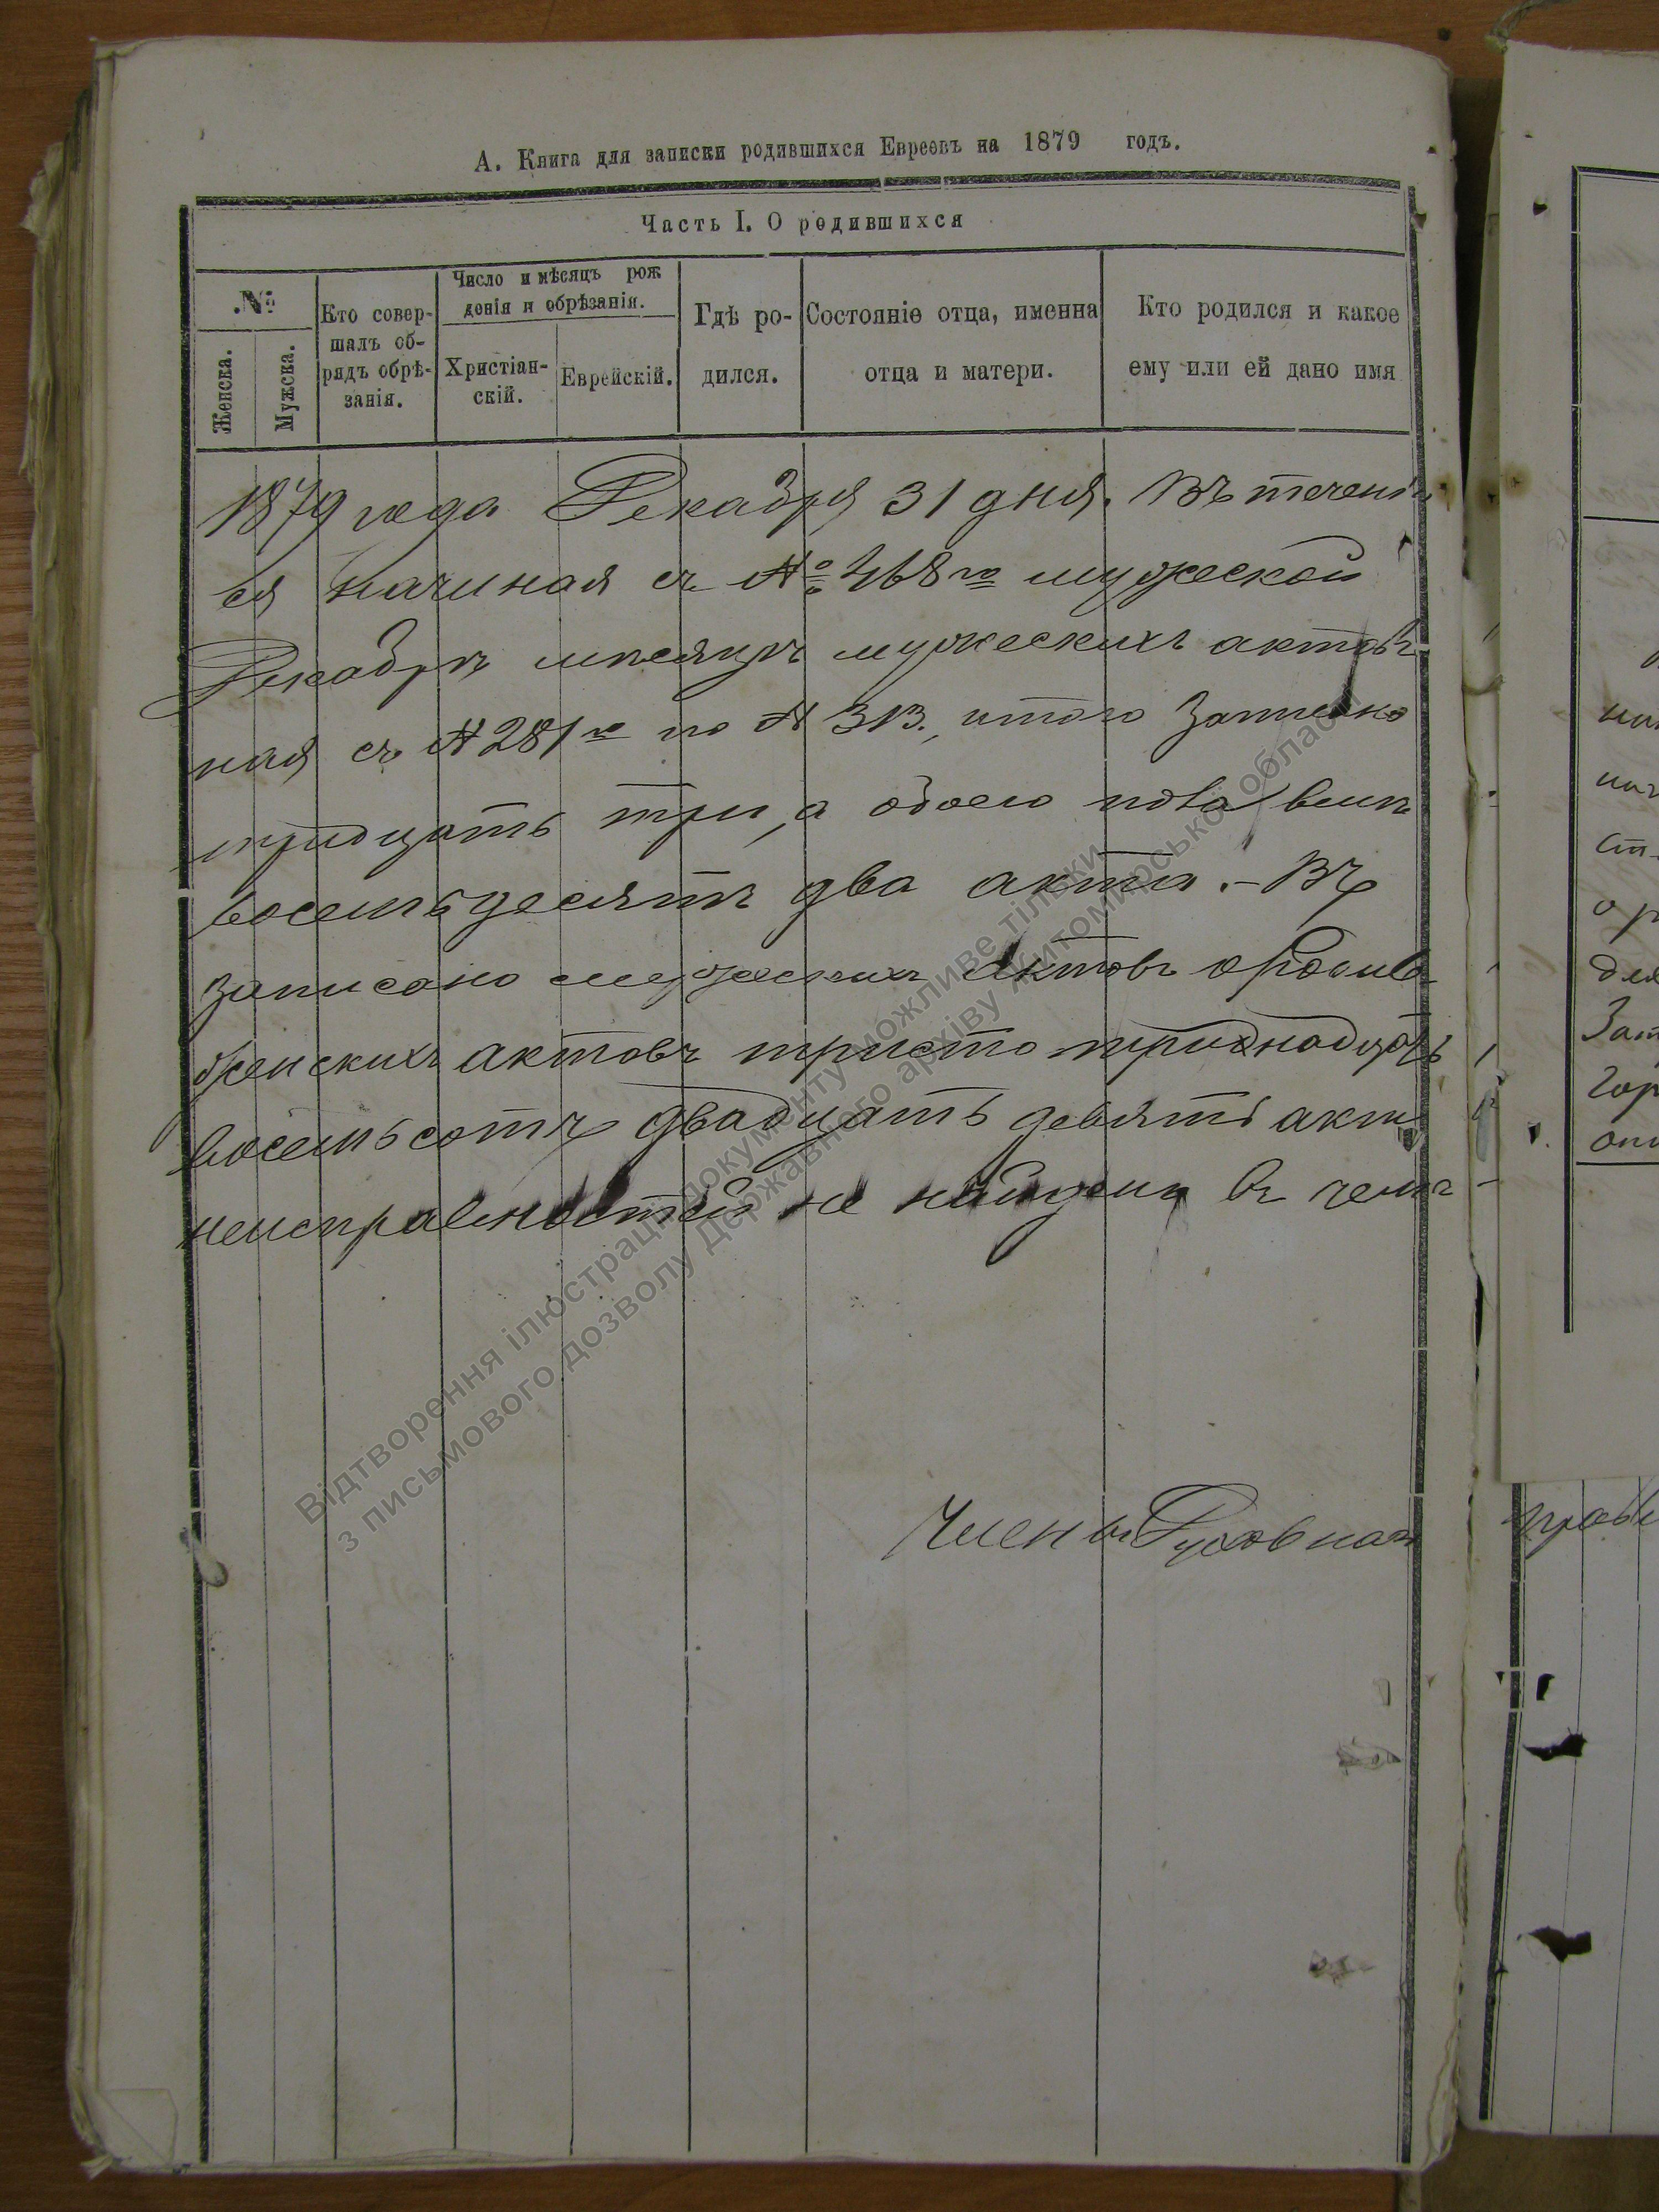 А. Книга для записки родившихся Евреевъ на 1879 годъ.
Часть I. О родившихся
№
Женска.
Мужска.
Кто совер-
шалъ об-
рядъ обрѣ-
занія.
Число и мѣсяцъ рож
денія и обрѣзанія.
Христіан-
скій.
Еврейскій.
Гдѣ ро-
дился.
Состояніе отца, именна
отца и матери.
Кто родился и какое
ему или ей дано имя
1879 года Декабря 31 дня. Въ теченіи
ся начиная съ № 468го мужеской
Декабрѣ мѣсяцѣ мужескихъ актовъ
ная съ № 281го по № 313., итого Записано
тридцать три, а обоего пола
восемьдесятъ два акта. - Въ
записано мужескихъ Актовъ о
женскихъ актовъ тристо тринадцать
восемьсотъ двадцать девять акт
неисправностей не найдено въ чемъ
Члены Духовнаго
Відтворення ілюстрації документу можливе тільки
з письмового дозволу Державного архіву Житомирської області